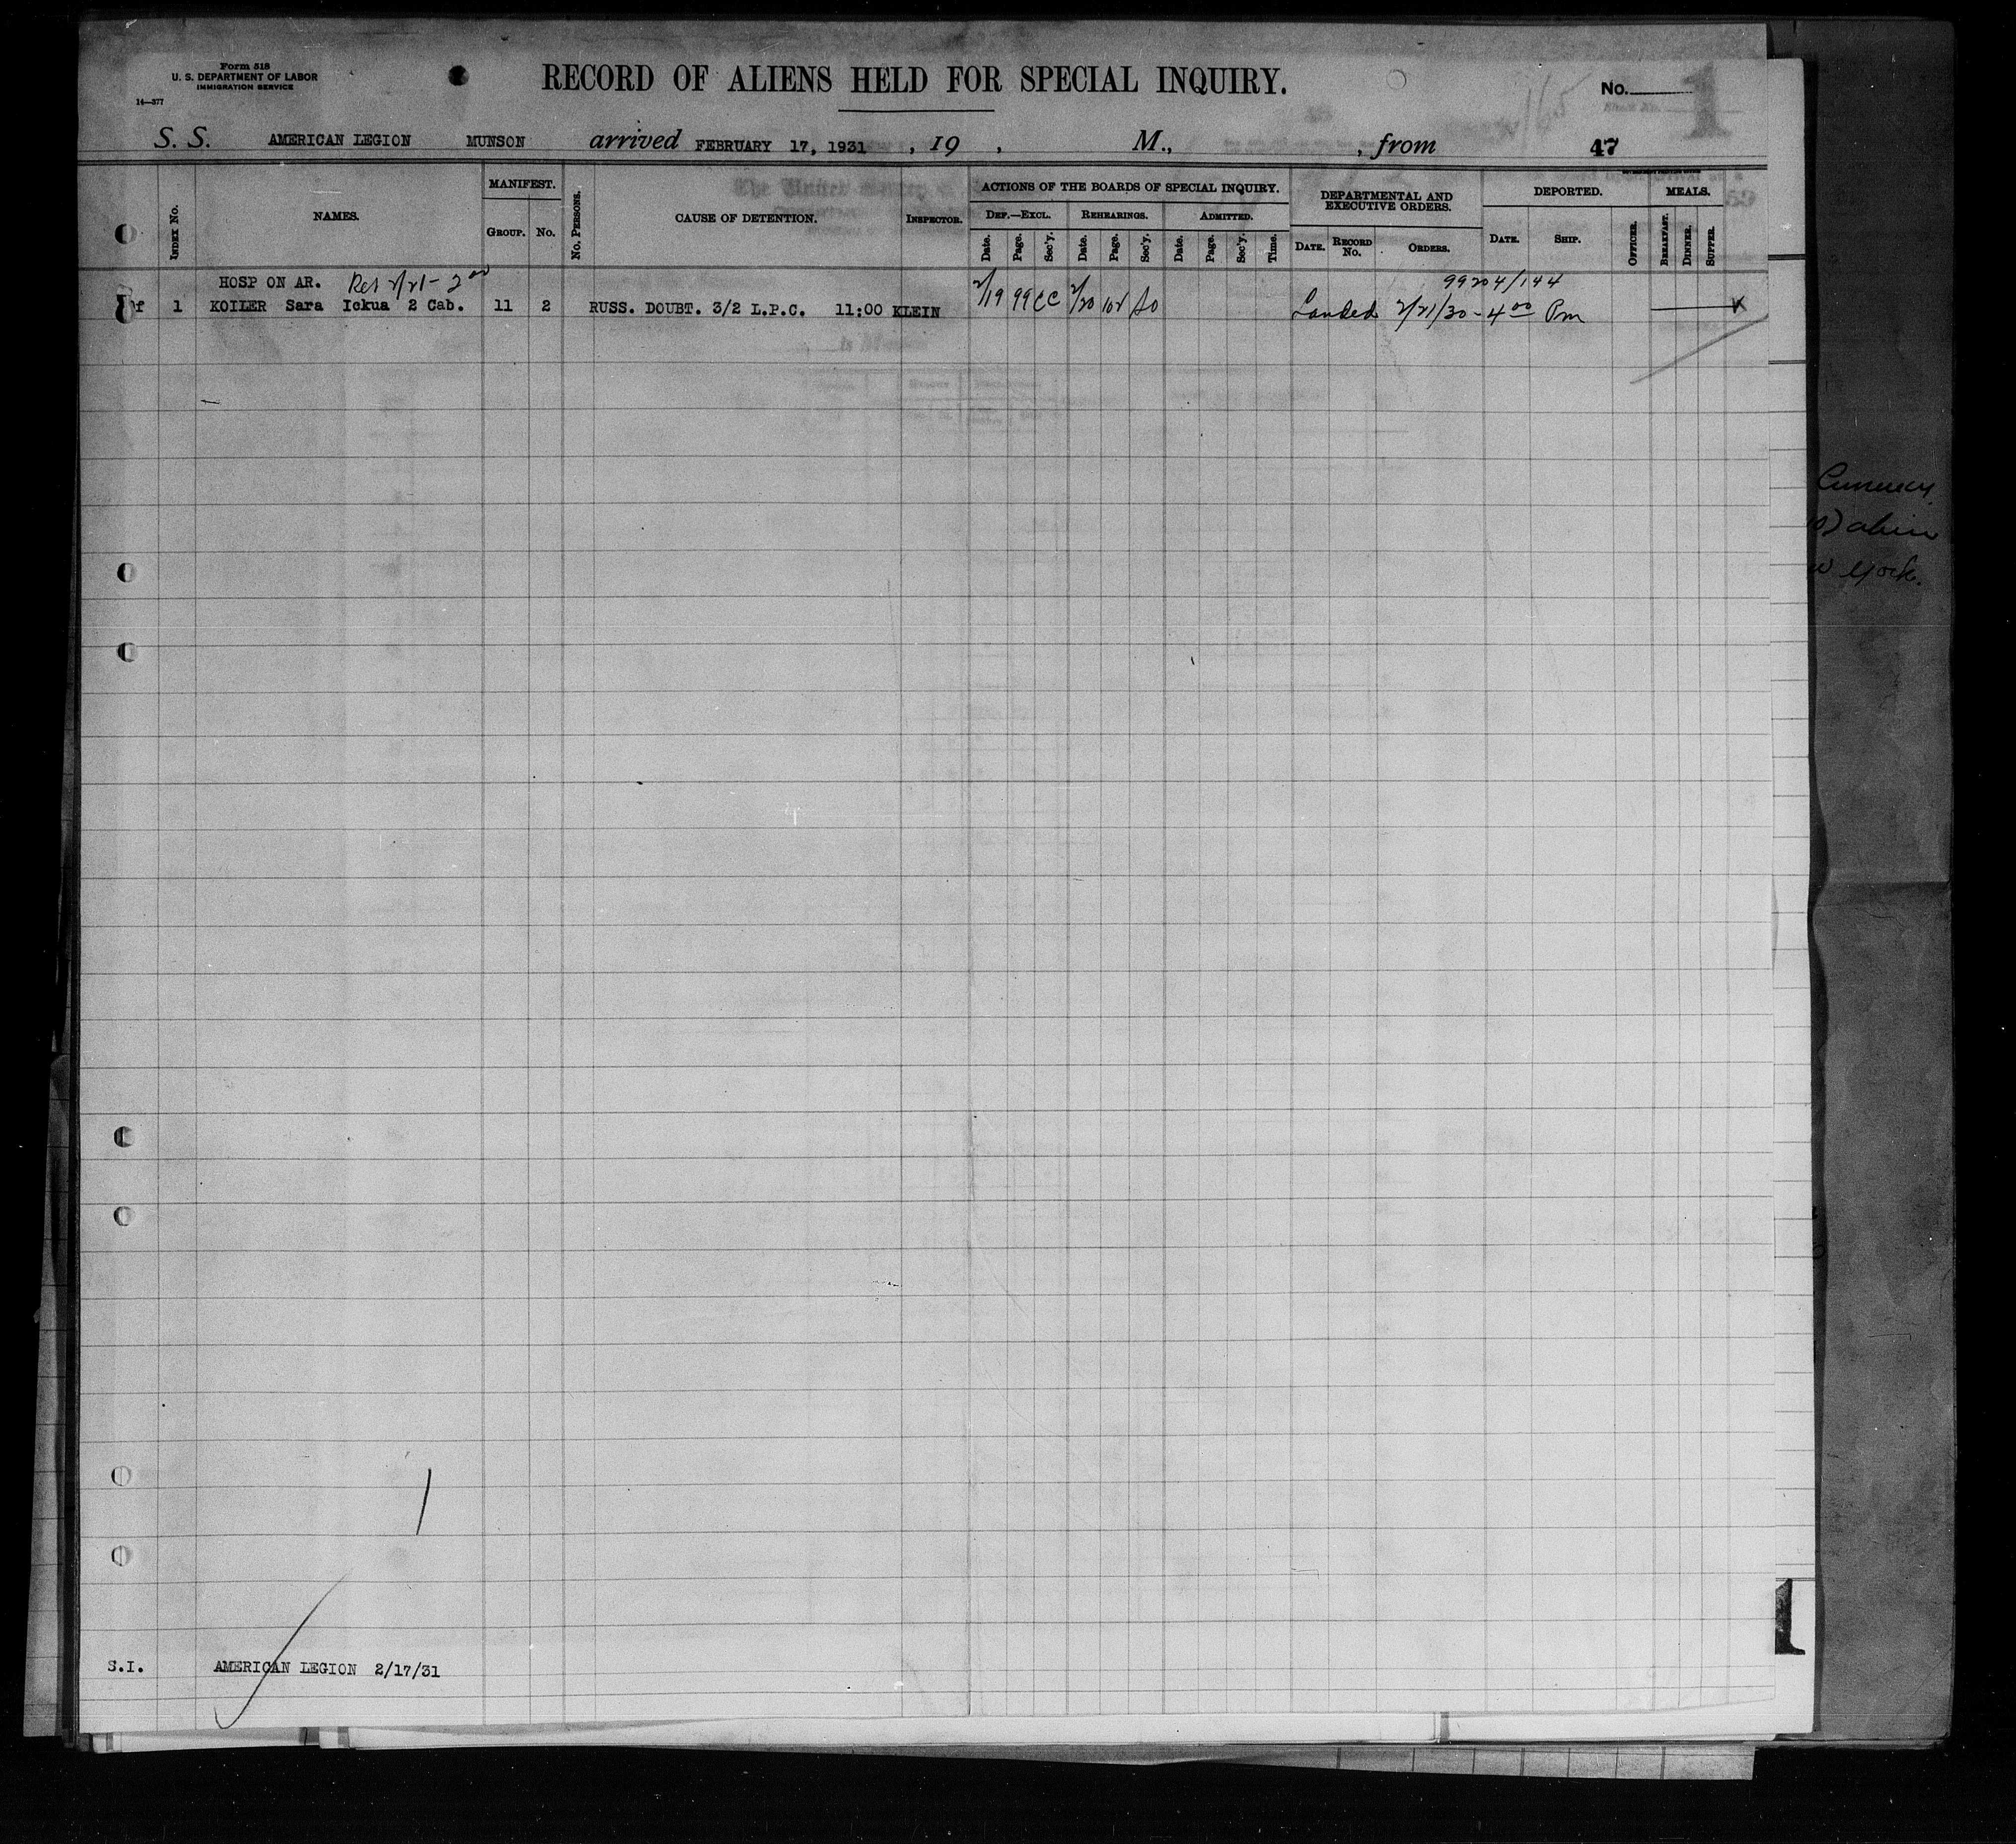 Form 518
U. S. DEPARTMENT OF LABOR
IMMIGRATION SERVICE
14—377
RECORD OF ALIENS HELD FOR SPECIAL INQUIRY.
No.
165
1
S. S. AMERICAN LEGION MUNSON arrived FEBRUARY 17, 1931 , 19 , M., , from 47
INDEX No.
NAMES.
MANIFEST.
GROUP. No.
No. PERSONS.
CAUSE OF DETENTION.
INSPECTOR.
ACTIONS OF THE BOARDS OF SPECIAL INQUIRY.
DEF.—EXCL. REHEARINGS. ADMITTED.
Date. Page. Sec'y. Date. Page. Sec'y. Date. Page. Sec'y. Time.
DEPARTMENTAL AND
EXECUTIVE ORDERS.
DATE. RECORD No. ORDERS.
DEPORTED.
DATE. SHIP. OFFICER.
MEALS.
BREAKFAST. DINNER. SUPPER.
59
HOSP ON AR. Res 2/21 - 2 00 99204/144
f 1 KOILER Sara Ickua 2 Cab. 11 2 RUSS. DOUBT. 3/2 L.P.C. 11:00 KLEIN 2/19 99 CC 2/20 102 Landed 2/21/30 - 4 00 Pm
W York.
1
S.I. AMERICAN LEGION 2/17/31